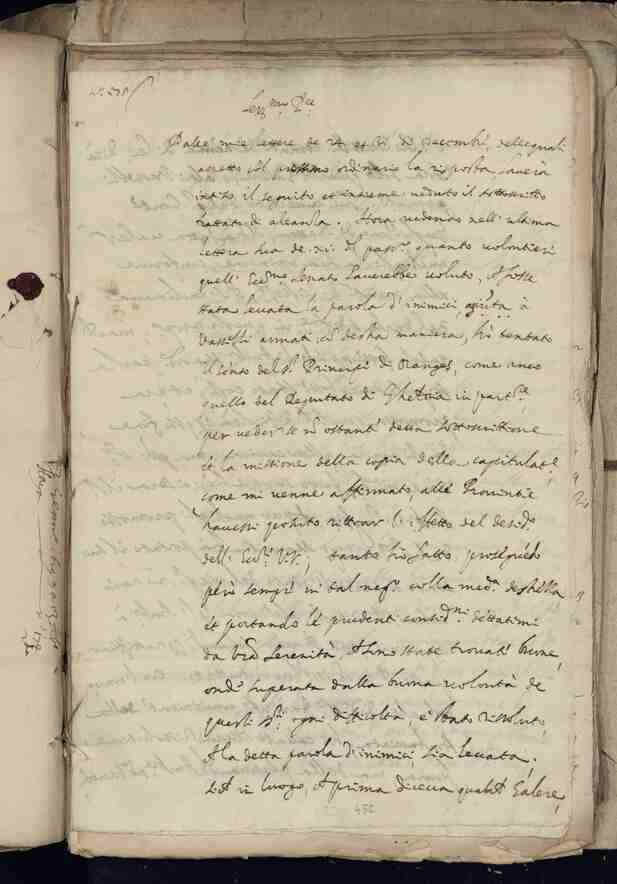 Ser.mo P.pe
Dalle mie lettere de 24 et 31 di Decembre, delle quali
aspetto col prossimo ordinario la risposta, haverà
inteso il seguito et insieme veduto il sottoscritto
trattato di aleanza. Hora vedendo nell'ultima
lettera sua de xii del pass.o quanto volontieri
quell' Ecc.mo Senato haverebbe voluto, che fosse
stata levata la parola d'inimici, aggiunta à
Vasselli armati, con destra maniera, hò tentato
il senso del S.r Principe di Oranges, come anco
quello del Deputato di Gheldria in part.re,
per veder se non ostante detta sottoscrittione
et la missione della copia delle capitulat.ni
come mi venne affirmato, alle Provintie
havessi potuto rittovar l'effetto del desid.o
dell' Ecc.e VV., tanto hò fatto, proseguendo
però sempre in tal neg.o colla med.a destrezza
et portando le prudenti consid.ni dettatimi
da Vra Serenità, che sono state trovate buone,
onde superata dalla buona volontà de
questi SS.ri ogni difficoltà, è stato rissoluto,
che la detta parola d'inimici sia levata,
et in luogo, che prima diceva quattro Galere,
452